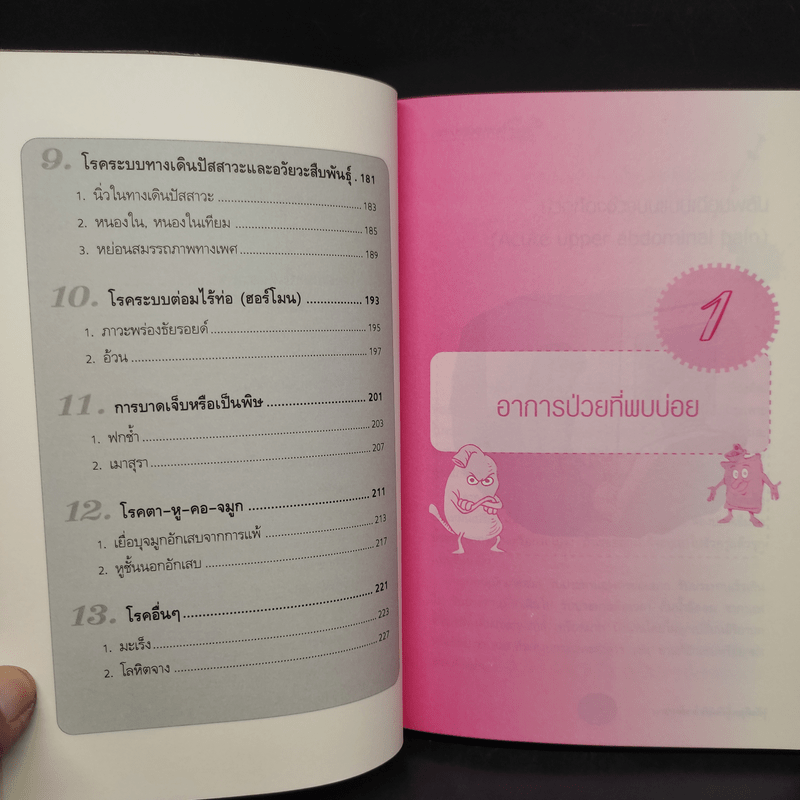 9. โรคระบบทางเดินปัสสาวะและอวัยวะสืบพันธุ์ . 181
1. นิ่วในทางเดินปัสสาวะ ........................ 183
2. หนองใน, หนองในเทียม ........................ 185
3. หย่อนสมรรถภาพทางเพศ ........................ 189
10. โรคระบบต่อมไร้ท่อ (ฮอร์โมน) ................ 193
1. ภาวะพร่องธัยรอยด์ ........................ 195
2. อ้วน ........................ 197
11. การบาดเจ็บหรือเป็นพิษ ........................ 201
1. ฟกช้ำ ........................ 203
2. เมาสุรา ........................ 207
12. โรคตา-หู-คอ-จมูก ........................ 211
1. เยื่อบุจมูกอักเสบจากการแพ้ ........................ 213
2. หูชั้นนอกอักเสบ ........................ 217
13. โรคอื่นๆ ........................ 221
1. มะเร็ง ........................ 223
2. โลหิตจาง ........................ 227
1
อาการป่วยที่พบบ่อย